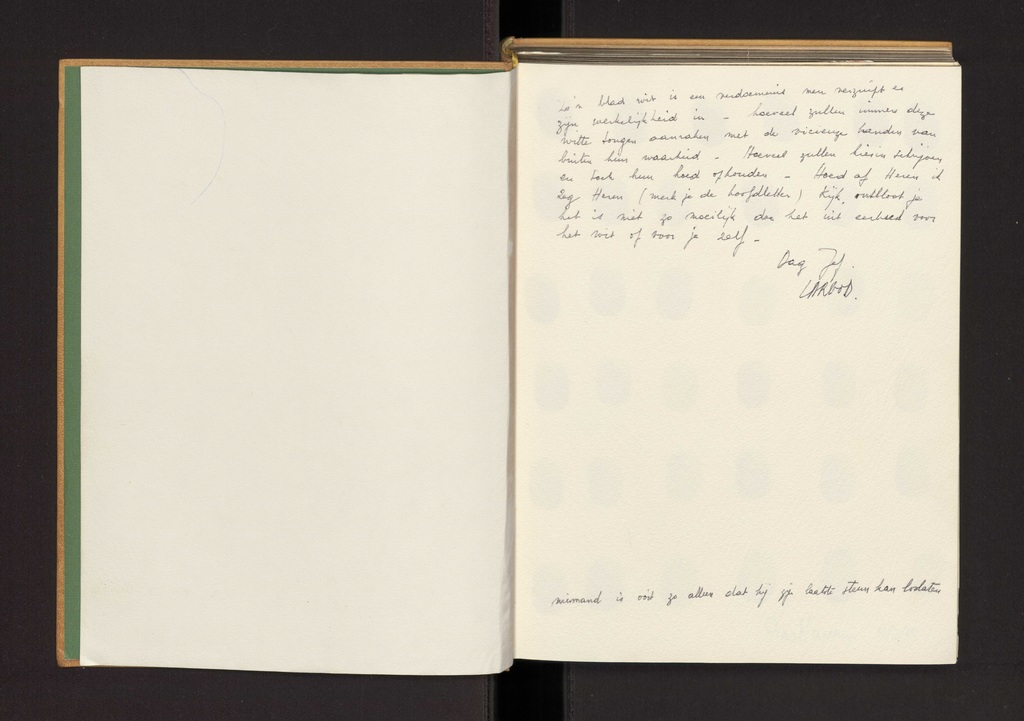 Zo'n blad wit is een verdoemenis men verzuipt er
zijn werkelijkheid in – hoeveel zullen immers deze
witte tongen aanraken met de vieze handen van
buiten hun waarheid – Hoeveel zullen hierin schrijven
en toch hun hoed ophouden – Hoed af Heren ik
zeg Heren (merk je de hoofdletter) Kijk, ontbloot je
het is niet zo moeilijk doe het uit eerbied voor
het wit of voor je zelf –
Dag Jef.
niemand is ooit zo alleen dat hij zijn laatste steun kan loslaten